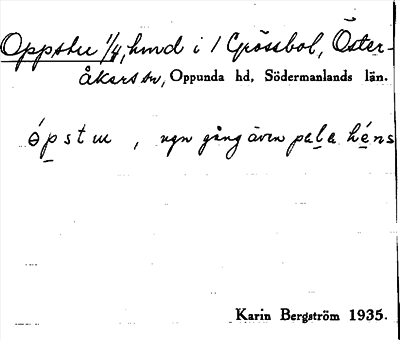 Oppstu 1/4, hmd i 1 Grössbol, Öster-
åkers sn, Oppunda hd, Södermanlands län.
ópstu, ngn gång även pala héns
Karin Bergström 1935.